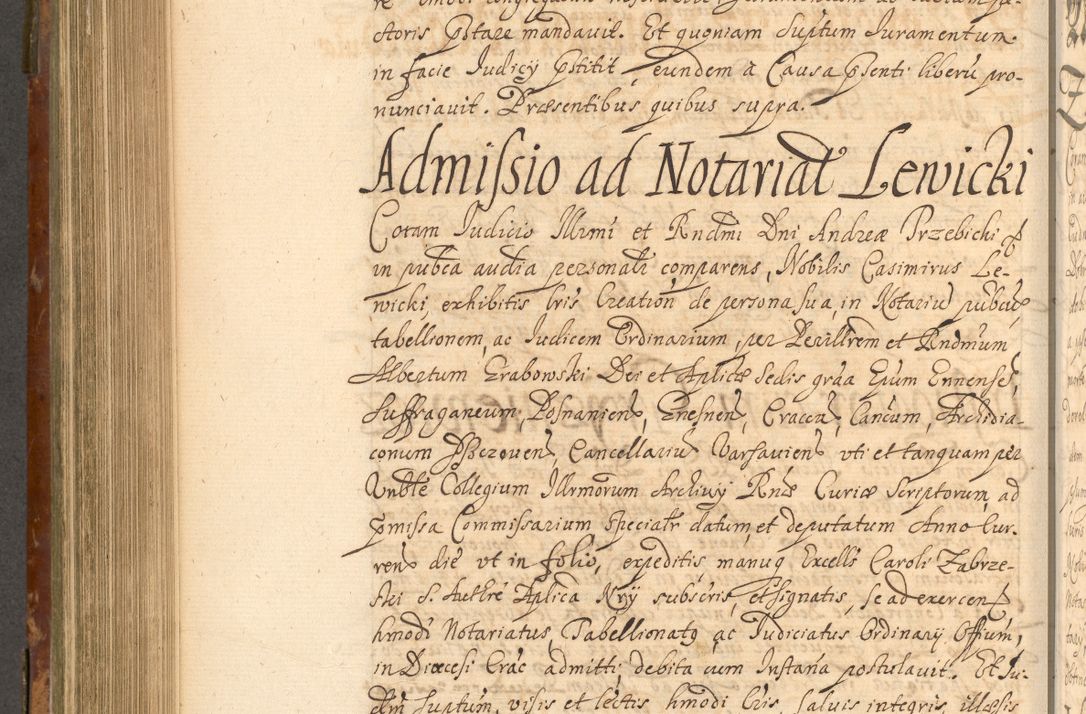 ctoris pstare mandavit. Et quoniam suptum Iuramentum
in facie Iudicy pstitit, eundem à Causa psenti liberū pro-
nunciavit. Præsentibus quibus supra.
Admissio ad Notariat Lewicki
Coram Iudicio Illrmi et Rndmi Dni Andreæ Przebicki
in pubca audia personalr comparens, Nobilis Casimirus Le-
wicki, exhibitis lris Creation de persona sua, in Notariū pubcū
tabellionem, ac Iudicem Ordinarium, per Perillrem et Rndmum
Albertum Grabowski Dei et Aplicæ Sedis gráa Epum Ennensē
Suffraganeum, Posnanien, Gnesnen, Cracen, Cancum, Archidia-
conum Pszczouen, Cancellariū Varsauien uti et tanquam per
Unble Collegium Illrmorum Archivy Rnæ Curiæ Scriptorum, ad
pmissa Commissarium specialr datum, et deputatum Anno Cur-
ren die ut in folio, expeditis manuq Excells Caroli Zabrze-
ski S. Authre Aplica Nrÿ subscris, et signatis, se ad exercen
hmodi Notariatus, Tabellionatq ac Iudiciatus Ordinary Offium,
in Diœcesi Crac admitti, debita cum Instána postulavit. Et Iu-
dm suptum, visis et lectis hmodi lris, salvis integris, illæsis